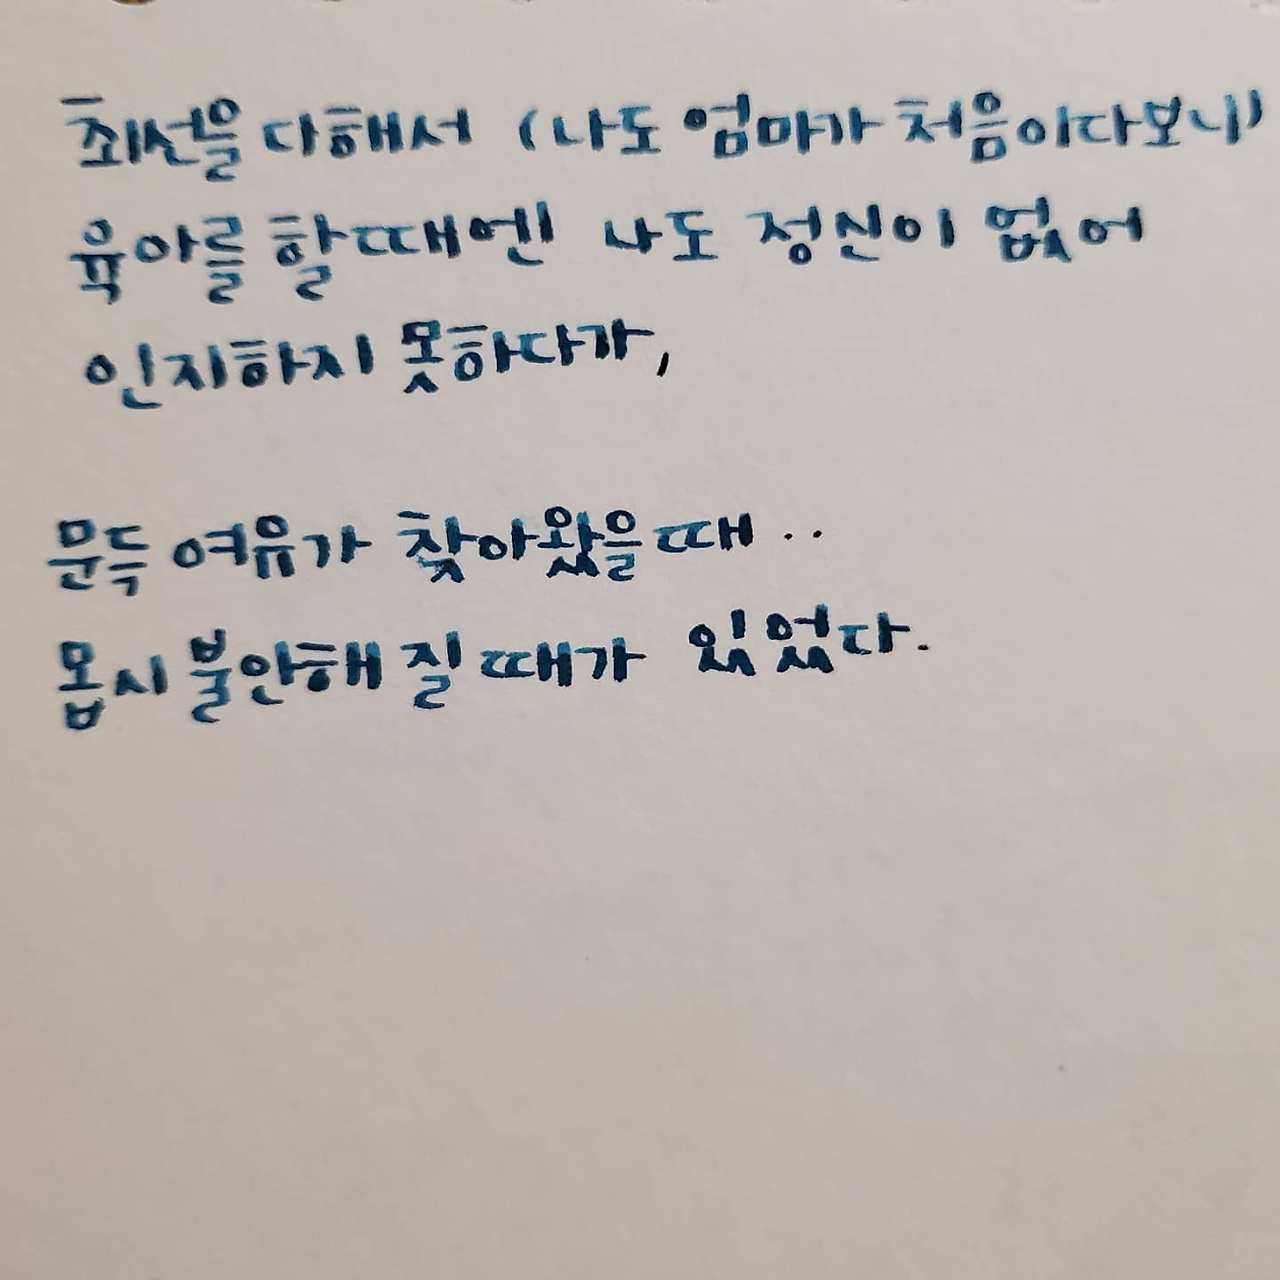 최선을 다해서 (나도 엄마가 처음이다보니)
육아를 할때엔 나도 정신이 없어
인지하지 못하다가,
문득 여유가 찾아왔을때..
몹시 불안해 질때가 있었다.